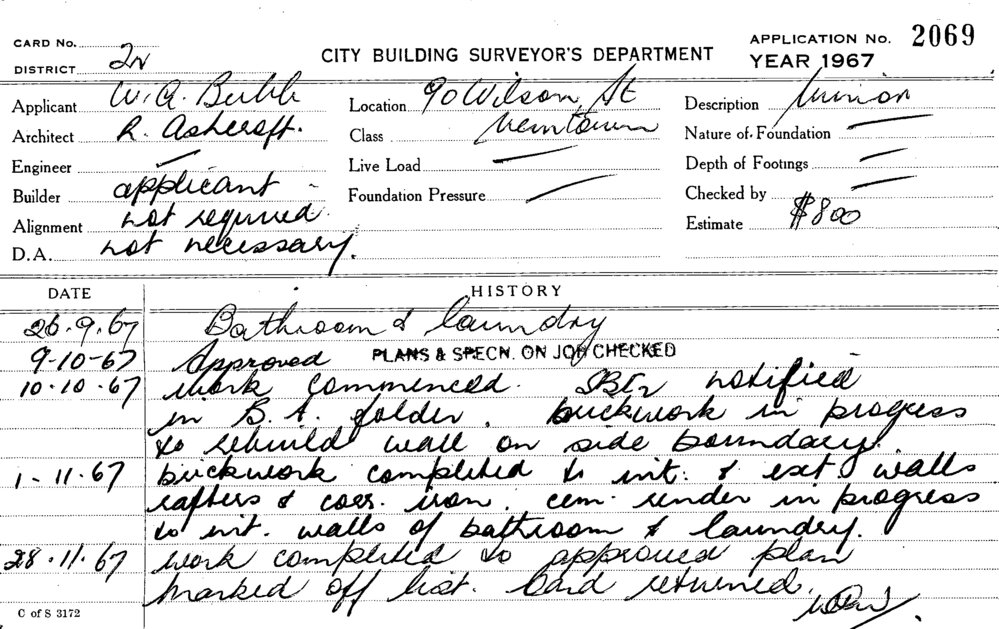 CARD No.
DISTRICT 2N
CITY BUILDING SURVEYOR'S DEPARTMENT
APPLICATION No. 2069
YEAR 1967
Applicant W. A. Bubb
Architect R. Ashcroft.
Engineer —
Builder applicant -
Alignment not required.
D.A. not necessary.
Location 90 Wilson, St
Class Newtown
Live Load —
Foundation Pressure —
Description Minor
Nature of Foundation —
Depth of Footings —
Checked by —
Estimate $800
DATE HISTORY
26.9.67 Bathroom & laundry
9-10-67 Approved PLANS & SPECN. ON JOB CHECKED
10.10.67 Work commenced. notified
in B.A. folder. brickwork in progress
to rebuild wall on side boundary.
1-11.67 brickwork completed to int. & ext walls
rafters & corr. iron. cem. render in progress
to int. walls of bathroom & laundry.
28.11.67 work completed to approved plan
marked off list. Card returned.
C of S 3172